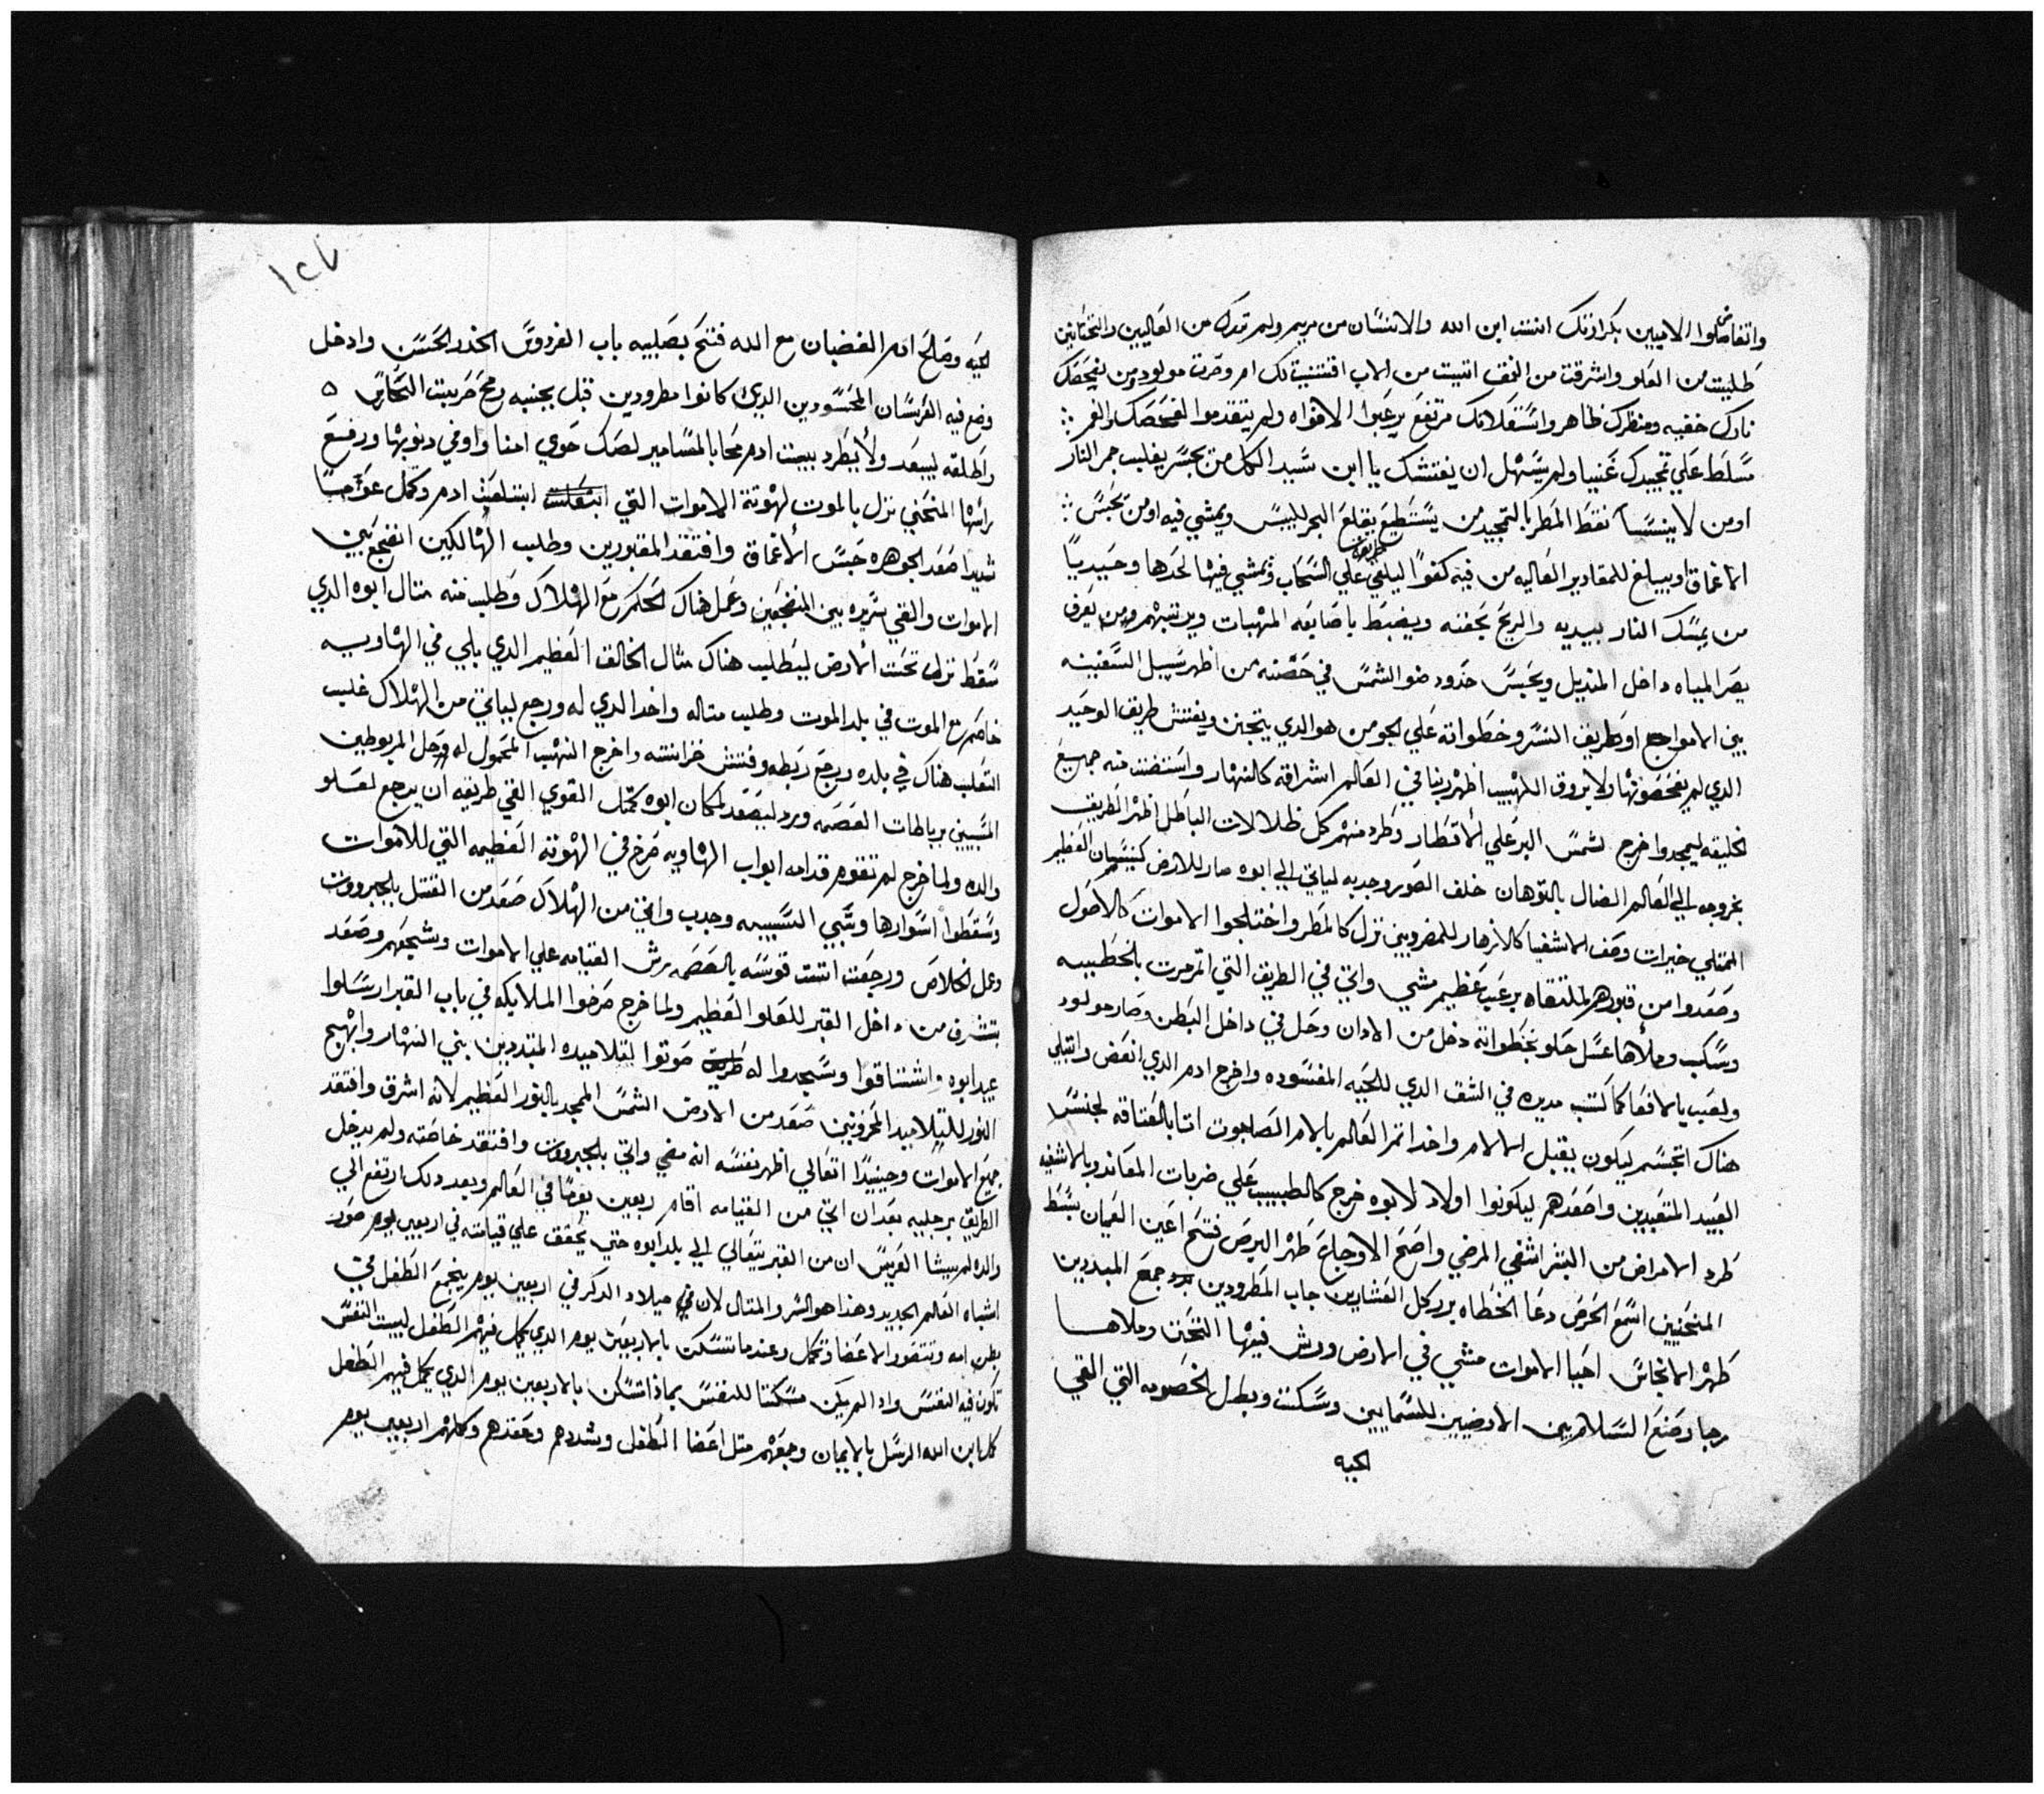 واتفاضلوا الاميين بكرازتك انت ابن الله والانسان من مريم ولم تترك من العاليين والتحتانين
طلبيت من العلو واشرقت من العمق اتيت من الاب اقتنيت لك ام وصرت مولود من يفحصك
نارك خفيه ومنظرك ظاهر واشتعلاتك مرتفع يرعبوا الافواه ولم يتقدموا لفحصك والفم
مسلط علي تمجيدك غنيا ولم يسهل ان يفتشك يا ابن سيد الكل من يجسر يقلب جمر النار
او من لا ينسا نقط المطر بالتمجيد من يستطيع يقلع البحر لليبس ويمشي فيه او من يحبس
الاعماق او يبلغ للمقادير العاليه من فيه كفوا ليلقي طريق علي السحاب ويمشي فيها لحدها وحيديا
من يمسك النار بيديه والريح بحفنه ويضبط باصابعه المهبات ويرتبهم ومن يعرف
يصر المياه داخل المنديل ويحبس حدود ضو الشمس في حضنه من اظهر سبيل السفينه
بين الامواج او طريف النسر وخطواته علي الجو من هو الدي يتجبن ويفتش طريف الوحيد
الدي لم يفحصونها ولا بروق اللهيب اظهر ربنا في العالم اشراقه كالنهار واستضت منه جميع
الخليقه ليمجدوا خرج شمس البر علي الاقطار وطرد منهم كل ظلالات الباطل اظهر الطريف
بخروجه الي العالم الضال بالتوهان خلف الصور وجدبه لياتي الي ابوه صار للارض كنيسان العظيم
الممتلي خيرات وصف الاشفيا كالازهار للمضرويين نزل كالمطر واختلجوا الاموات كالاصول
وصعدوا من قبورهم لملتقاه برعب عظيم مشي واتي في الطريق التي اتمرمرت بالخطيه
وسكب وملأها عسل حلو بخطواته دخل من الادان وحل في داخل البطن وصار مولود
ولعب بالافعا كما كتب مديده في الشق الدي للحيه المفسوده واخرج ادم الدي انعض وابتلي
هناك اتجسم ليكون يقبل الالام واخد اتمر العالم بالام الصابوت اتا بالعتاقه لجنس
العبيد المتعبدين واصعدهم ليكونوا اولاد لابوه خرج كالطبيب علي ضربات المعاندو بالاشفيه
طرد الامراض من البشر اشفي المرضي واصح الاوجاع طهر البرص فتح اعين العميان بسط
المنحنيين اسمع الخرص دعا الخطاه برر كل العشارين جاب المطرودين برد جمع المبددين
طهر الانجاس احيا الاموات مشي في الارض ورش فيها التحنن وملاها
رجا وصنع السلام بين الارضيين للسماييين وسكنت وبطل الخصومه التي القي
الحيه
١٢٧
الحيه وصالح ادم الغضبان مع الله فتح بصليبه باب الفردوس الخدر الحسن وادخل
وضع فيه الفرسان المحسودين الدين كانوا مطرودين قبل بجنبه رمح خربيت الحارس
واطلقه ليبعد ولا يطرد بيت ادم محا بالمسامير لصك حوي امنا واوفي دنوبها ورفع
راسها المنحني نزل بالموت لهوتة الاموات التي ابتلعت ادم وكمل عواصا
شديدا صعد الجوهره حبس الاعماق وافتقد المقبورين وطلب الهالكين انضجع بين
الاموات والقي سريره بين المنضجعين وعمل هناك الحكم مع الهلاك وطلب منه متال ابوه الدي
سقط نزل تحت الارض ليطلب هناك متال الخالق العظيم الدي بلي في الهاويه
خاصم مع الموت في بلد الموت وطلب متاله واخد الدي له ورجع لياتي من الهلاك غلب
التعلب هناك في بلده ورجع ربطه وفتش خزانته واخرج النهب المحمول له وحل المربوطين
المسبيين برباطات العصمه ورد ليصعد لمكان ابوه كمتل القوي القي طريقه ان يرجع لعلو
والده ولما خرج لم تقوم قدامه ابواب الهاويه صرخ في الهوته العظيمه التي للاموات
وسقطوا اسوارها وسبي السبيه وجدب واتي من الهلاك صعد من القتل بالجبروت
وعمل الخلاص ورجعت انت قوسه بالعصمه رش القيامه علي الاموات وشجعهم وصعد
يتشرف من داخل القبر للعلو العظيم ولما خرج صرخوا الملايكه في باب القبر ارسلوا
عبيد ابوه واشتاقوا وسجدوا له صوتوا لتلاميده المتبددين بني النهار وابهج
النور للتلاميد المحزونين صعد من الارض الشمس الممجد بالنور العظيم لانه اشرق وافتقد
جميع الاموات وحينيدا اتعالي اظهر نفسه انه مضي واتي بالجبروت وافتقد خاصته ولم يدخل
الطريق برجليه بعد ان اتي من القيامه اقام ربعين يوما في العالم وبعد دلك ارتفع الي
والده لم يشا العريس ان من القبر يتعالي الي بلد ابوه حتي يحقق علي قيامته في اربعين يوم صور
اشباه العالم الجديد وهذا هو السر والمتال لان في ميلاد الدكر في اربعين يوم يجمع الطفل في
بطن امه وتتصور الاعضا وتكمل وعندما تسكن بالاربعين يوم الدي يكمل فيهم الطفل لبيت النفس
تكون فيه النفس واد الم يكن مسكنا للنفس بماذا تسكن بالاربعين يوم الدي يكمل فيهم الطفل
كمل ابن الله الرسل بالايمان وجمعهم متل اعضا الطفل وشددهم وعقدهم وكلهم اربعين يوم